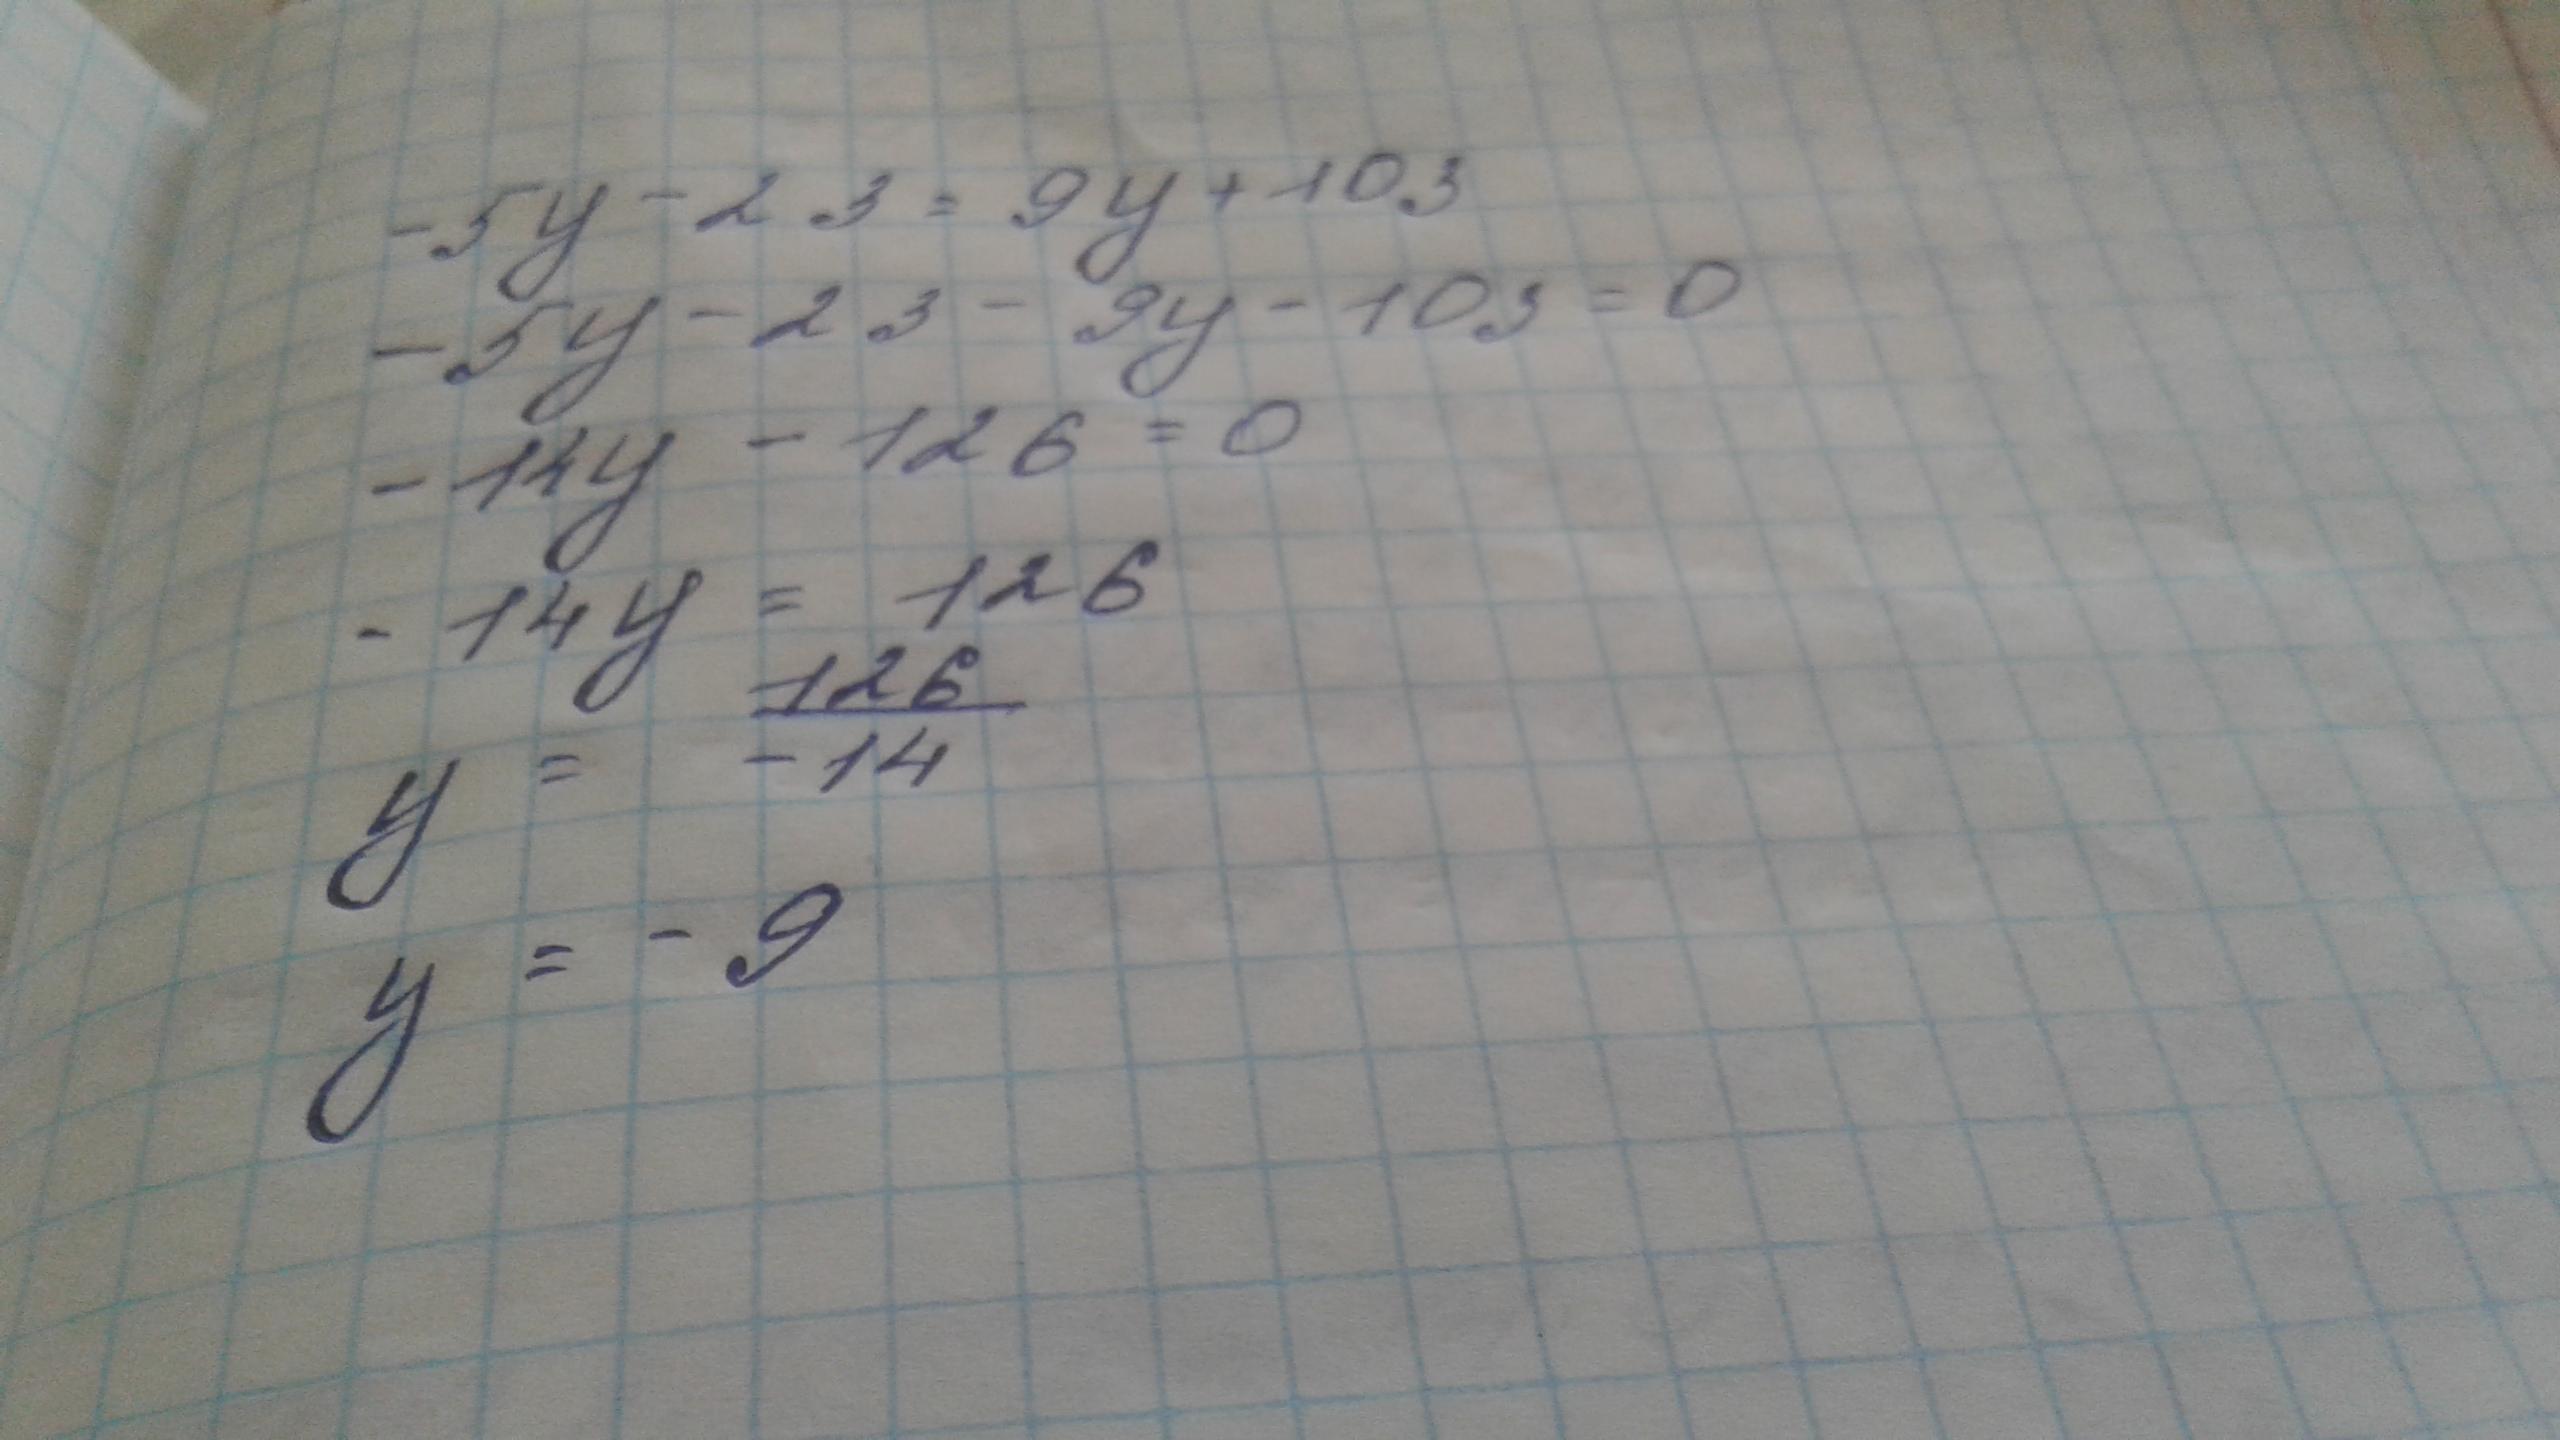 -5y - 23 = 9y + 103
-5y - 23 - 9y - 103 = 0
-14y - 126 = 0
-14y = 126
y = 126/-14
y = -9